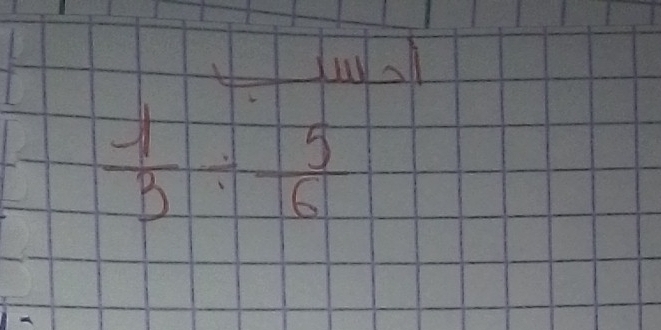 احسب
1/3 ÷ 5/6